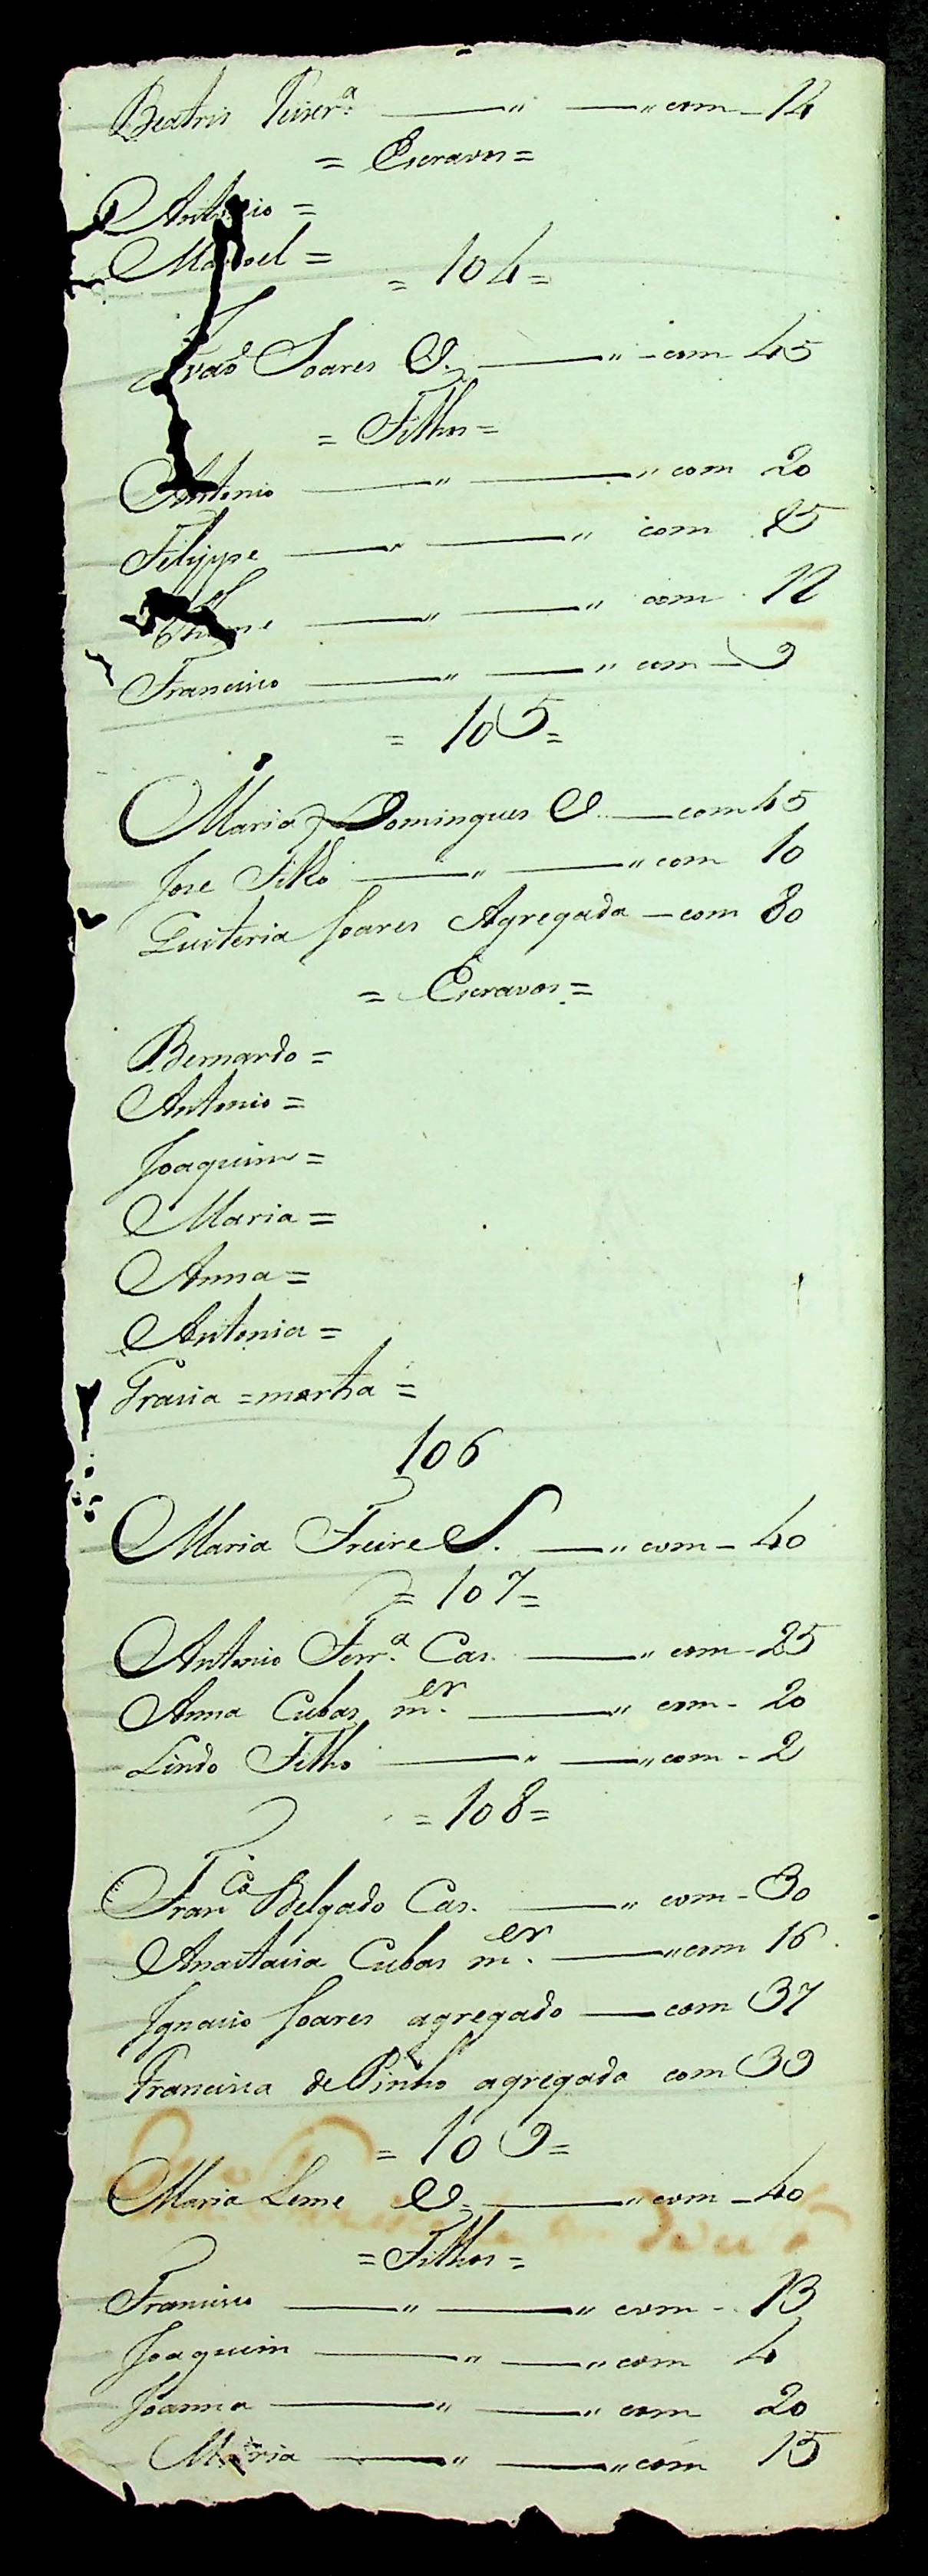 Beatris — " — " com — 14
= Escravos =
Antonio =
Manoel =
= 104 =
João Soares V. — " — com 45
= Filhos =
Antonio — " — " com 20
Filippe — " — " com 15
— " — " com 12
Francisco — " — " com — 9
= 105 =
Maria Domingues V. — com 45
Jose Filho — " — " com 10
Quiteria Soares Agregada — com 80
= Escravos =
Bernardo =
Antonio =
Joaquim =
Maria =
Anna =
Antonia =
Gracia = martha =
106
Maria Freire S. — " com — 40
= 107 =
Antonio Ferr.ª Cas. — " com — 25
Anna Cubas m.er — " com — 20
Lindo Filho — " — " com — 2
= 108 =
Franco Delgado Cas. — " com — 30
Anastacia Cubas m.er — " com 16
Ignacio Soares agregado — com 37
Francisca de Pinho agregada com 39
= 109 =
Maria Leme V. — " com — 40
= Filhos =
Francisco — " — " com — 13
Joaquim — " — " com 4
Joanna — " — " com 20
Maria — " — " com 15